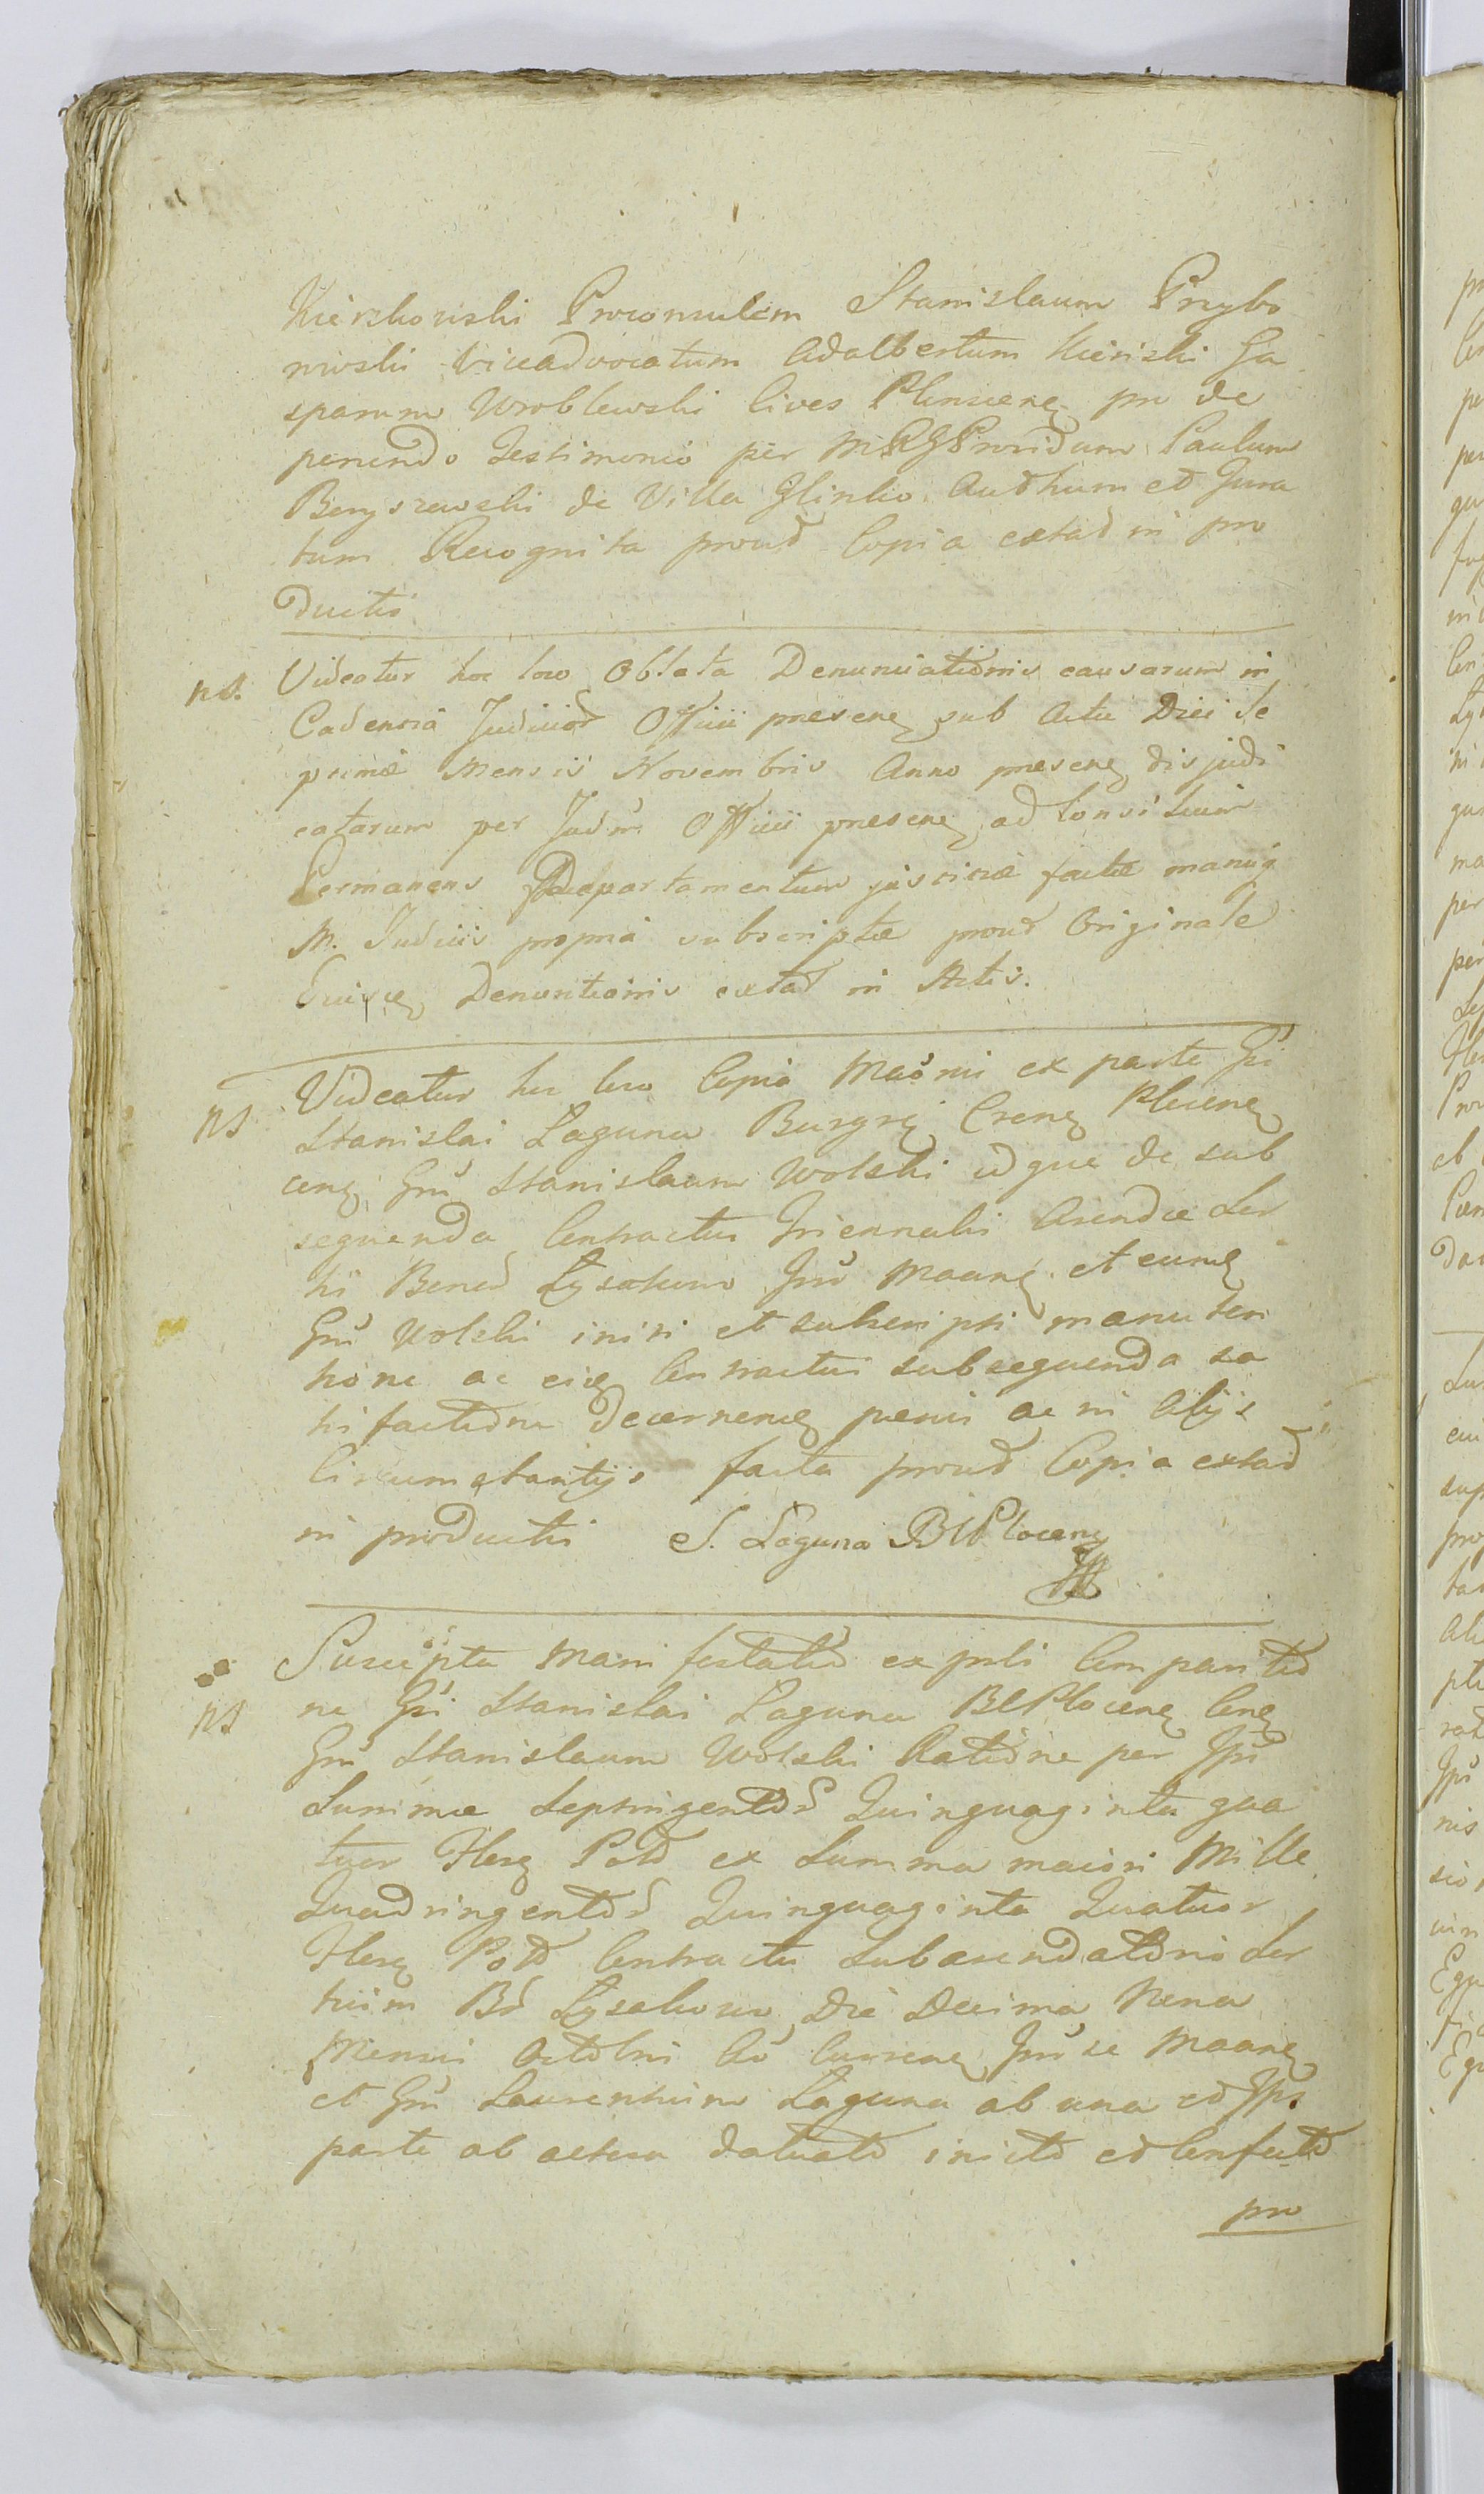 Kierzkowski Proconsulem Stanislaum Przybo
rowski Viceadvocatum Adalbertum Kierski Ga
sparum Wroblewski Cives Plonscenę pro de
ponendo Testimonio per Providum Paulum
de Villa Glinki et Jura
tum Recognita proud Copia extad in pro
ductis
NS. Videatur hoc loco Oblata Denunciationis causarum in
Cadencia Judicior Officii presenę sub Actu Diei Se
ptimæ Mensis Novembris Anno presenę disjudi
catarum per Jud'm Officii presenę ad Consilium
Permanens Departamentum justiciæ factæ manuq
M. Judicis propria subscriptæ proud Originale
Denuntionis extad in Actis.
NS Videatur hic loco Copia ex parte Gsi
Stanislai Laguna Burgrę Crenę Plocenę
cenę Gm Stanislaum Wolski id que de sub
sequenda Contractus Triennalis Arendæ Sor
tis Bonod Lysakowo et eunę
Gm Wolski initi et subscripti manuten
tione ac eię Contractui subsequenda sa
tisfactione Decernenę penis ac in Alijs
Circumstantijs facta proud Copia extad
in productis S. Laguna BCPlocenę
NS Suscepta Manifestatio ex Comparitio
ne Gsi Stanislai Laguna BCPlocenę Cenę
Gm Stanislaum Wolski Ratione per Jpm
Summæ Septingentor Quinquaginta qua
tuor Flerę Polo ex Summa maiori Mille
Quadringentor Quinquaginta Quatuor
Flerę Polo Contractu Subarendatorio Sor
tium Bor Lysakowo Die Decima Nona
Mensis Octobris Ao Currenę Inse Maanę
et Gm Laurentium Laguna ab una ed Jps
parte ab altera datuato inito ed Confecto
pro